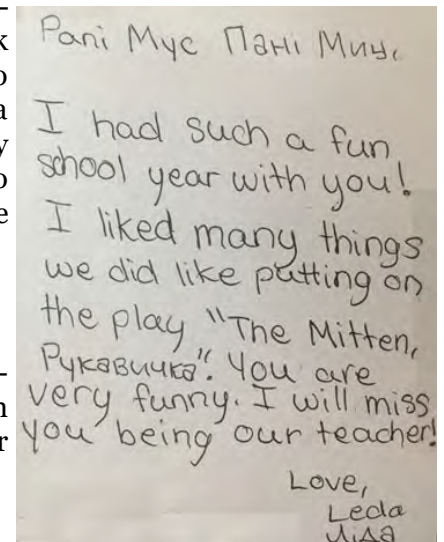 Pani Myc Пані Миц,
I had such a fun
school year with you!
I liked many things
we did like putting on
the play "The Mitten,
Рукавичка". You are
very funny. I will miss
you being our teacher!
Love,
Leda
Ліда